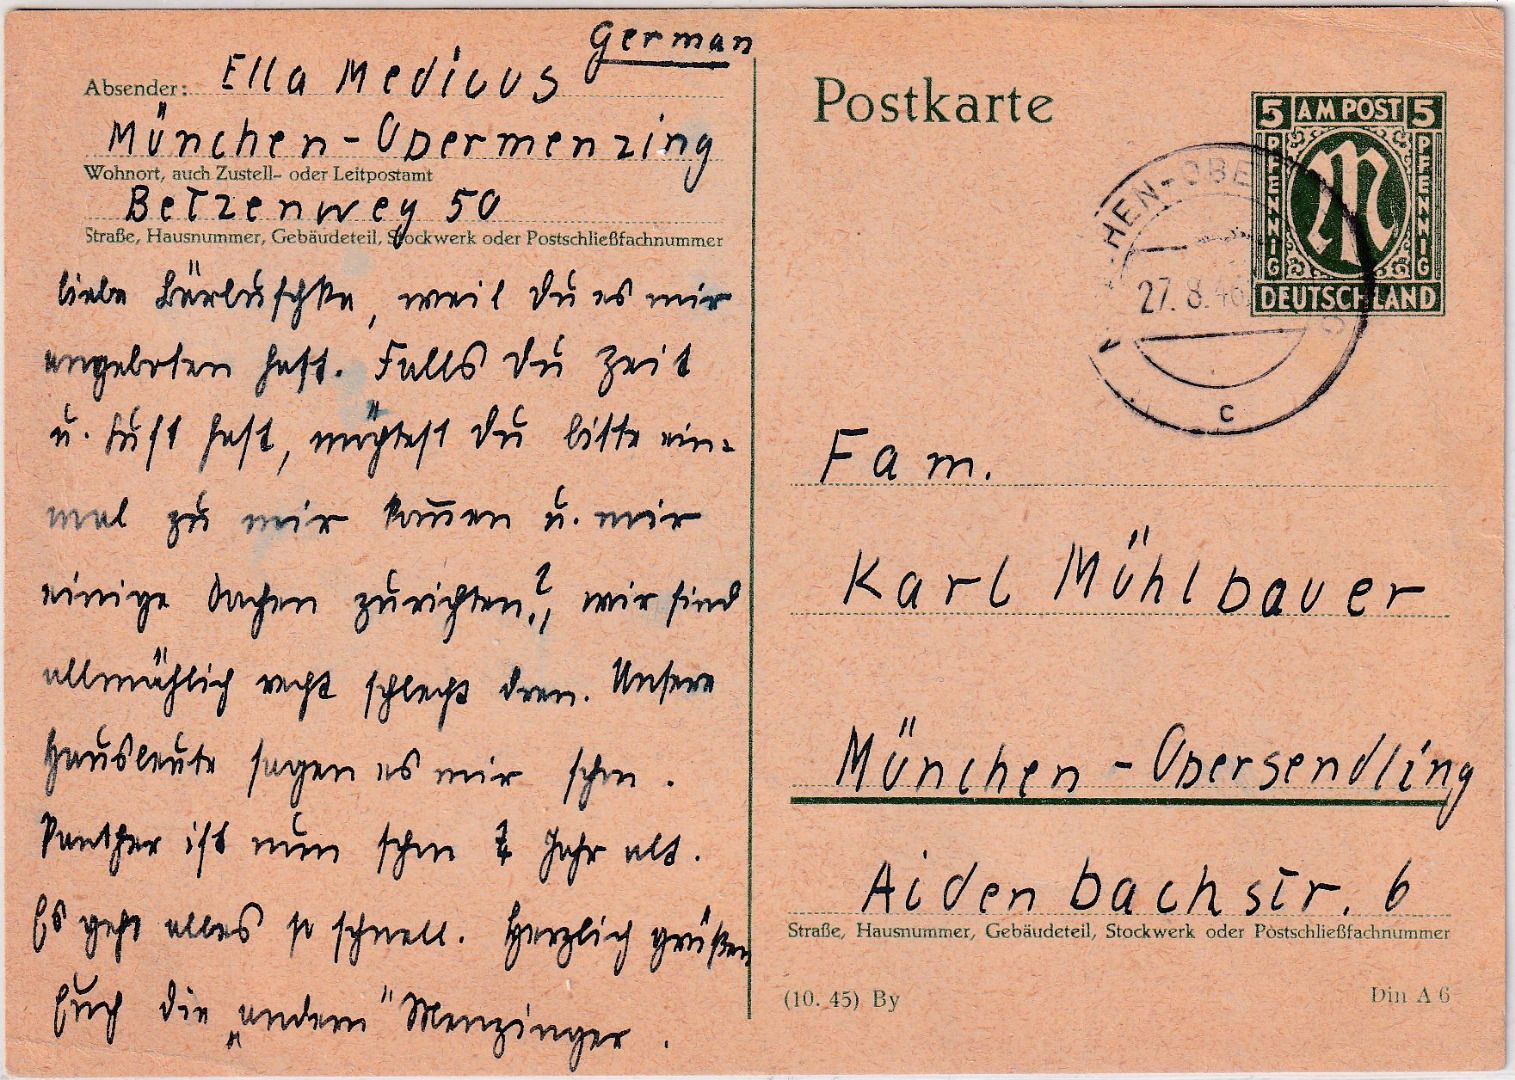 German
Absender: Ella Medicus
München-Obermenzing
Wohnort, auch Zustell- oder Leitpostamt
Betzenweg 50
Straße, Hausnummer, Gebäudeteil, Stockwerk oder Postschließfachnummer
liebe Bärluschka, weil Du es mir
angeboten hast. Falls Du Zeit
u. Lust hast, möchtest Du bitte ein-
mal zu mir kom̅en u. mir
einige Sachen zurichten?, wir sind
allmählich recht schlecht dran. Unsere
Hausleute sagen es mir schon.
Panther ist nun schon Jahr alt.
Es geht alles so schnell. Herzlich grüßen
Euch die „andern" Menzinger.
Postkarte
5 AM POST 5
PFENNIG PFENNIG
DEUTSCHLAND
HEN-OBE
27.8.46
c
Fam.
Karl Mühlbauer
München-Obersendling
Aidenbachstr. 6
Straße, Hausnummer, Gebäudeteil, Stockwerk oder Postschließfachnummer
(10. 45) By
Din A 6